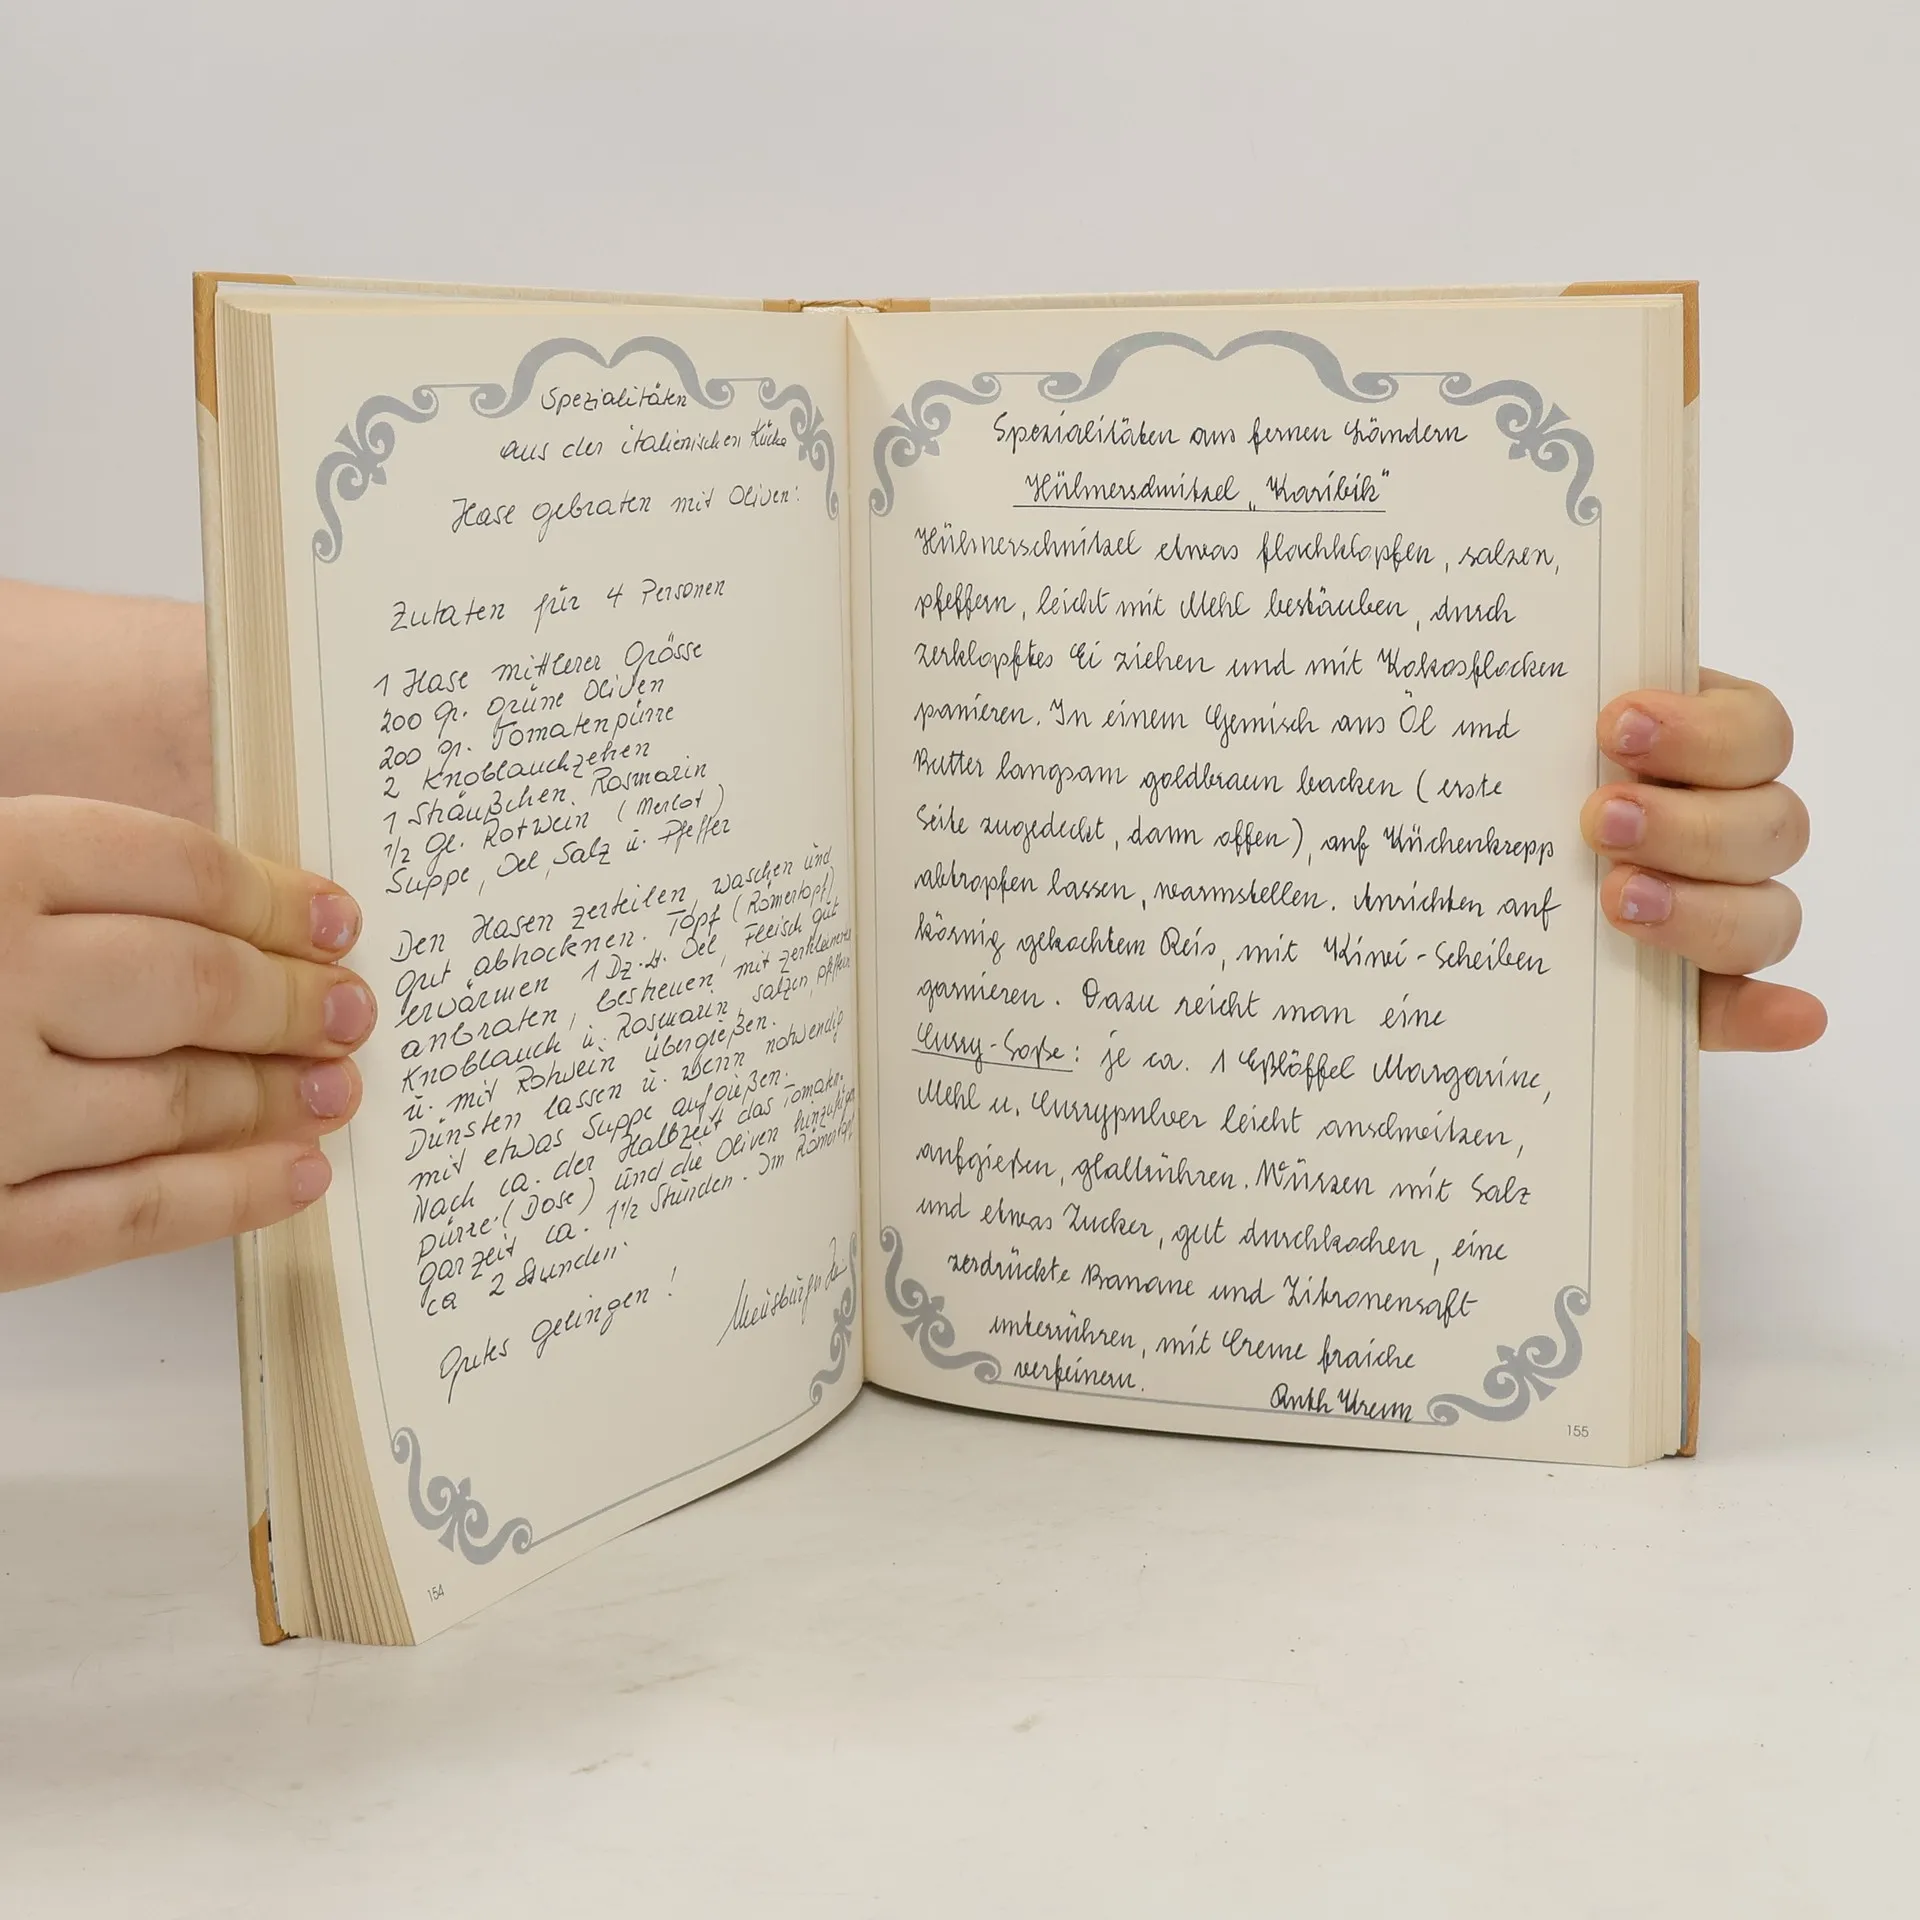 Spezialitäten
aus der italienischen Küche
Hase gebraten mit Oliven:
Zutaten für 4 Personen
1 Hase mittlerer Grösse
200 gr. grüne Oliven
200 gr. Tomatenpürre
2 Knoblauchzehen
1 Sträußchen Rosmarin
1/2 Gl. Rotwein (Merlot)
Suppe, Oel, Salz u. Pfeffer
Den Hasen zerteilen, waschen und
gut abtrocknen. Topf (Römertopf)
erwärmen 1 Dz. Lt. Oel, Fleisch gut
anbraten, bestreuen mit zerkleinerten
Knoblauch u. Rosmarin, salzen, pfeffern
u. mit Rotwein übergießen.
Dünsten lassen u. wenn notwendig
mit etwas Suppe aufgießen.
Nach ca. der Halbzeit das Tomaten-
pürre (Dose) und die Oliven hinzufügen
garzeit ca. 1 1/2 Stunden. Im Römertopf
ca 2 Stunden.
Gutes gelingen!
154
Spezialitäten aus fernen Ländern
Hühnerschnitzel „Karibik"
Hühnerschnitzel etwas flachklopfen, salzen,
pfeffern, leicht mit Mehl bestäuben, durch
zerklopftes Ei ziehen und mit Kokosflocken
panieren. In einem Gemisch aus Öl und
Butter langsam goldbraun backen (erste
Seite zugedeckt, dann offen), auf Küchenkrepp
abtropfen lassen, warmstellen. Anrichten auf
körnig gekochtem Reis, mit Kiwi-Scheiben
garnieren. Dazu reicht man eine
Curry-Soße: je ca. 1 Eßlöffel Margarine,
Mehl u. Currypulver leicht anschwitzen,
aufgießen, glattrühren. Würzen mit Salz
und etwas Zucker, gut durchkochen, eine
zerdrückte Banane und Zitronensaft
unterrühren, mit Creme fraiche
verfeinern.
Ruth
155